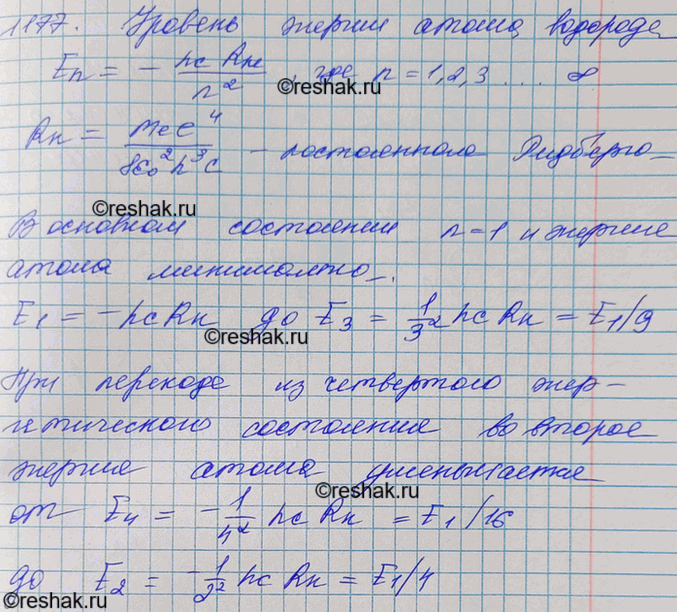 1177. Уровень энергии атома водорода
En = - hc Rн / n² , где n = 1,2,3 .... ∞
©reshak.ru
Rн = mee⁴ / 8ε₀²h³c - постоянная Ридберга
©reshak.ru
В основном состоянии n=1 и энергия
атома минимально.
E1 = -hcRн до E3 = 1/3² hc Rн = E1/9
©reshak.ru
При переходе из четвертого энер-
гетического состояние во второе
энергия атома уменьшается
©reshak.ru
от E4 = -1/4² hc Rн = E1/16
до E2 = -1/2² hc Rн = E1/4
©reshak.ru